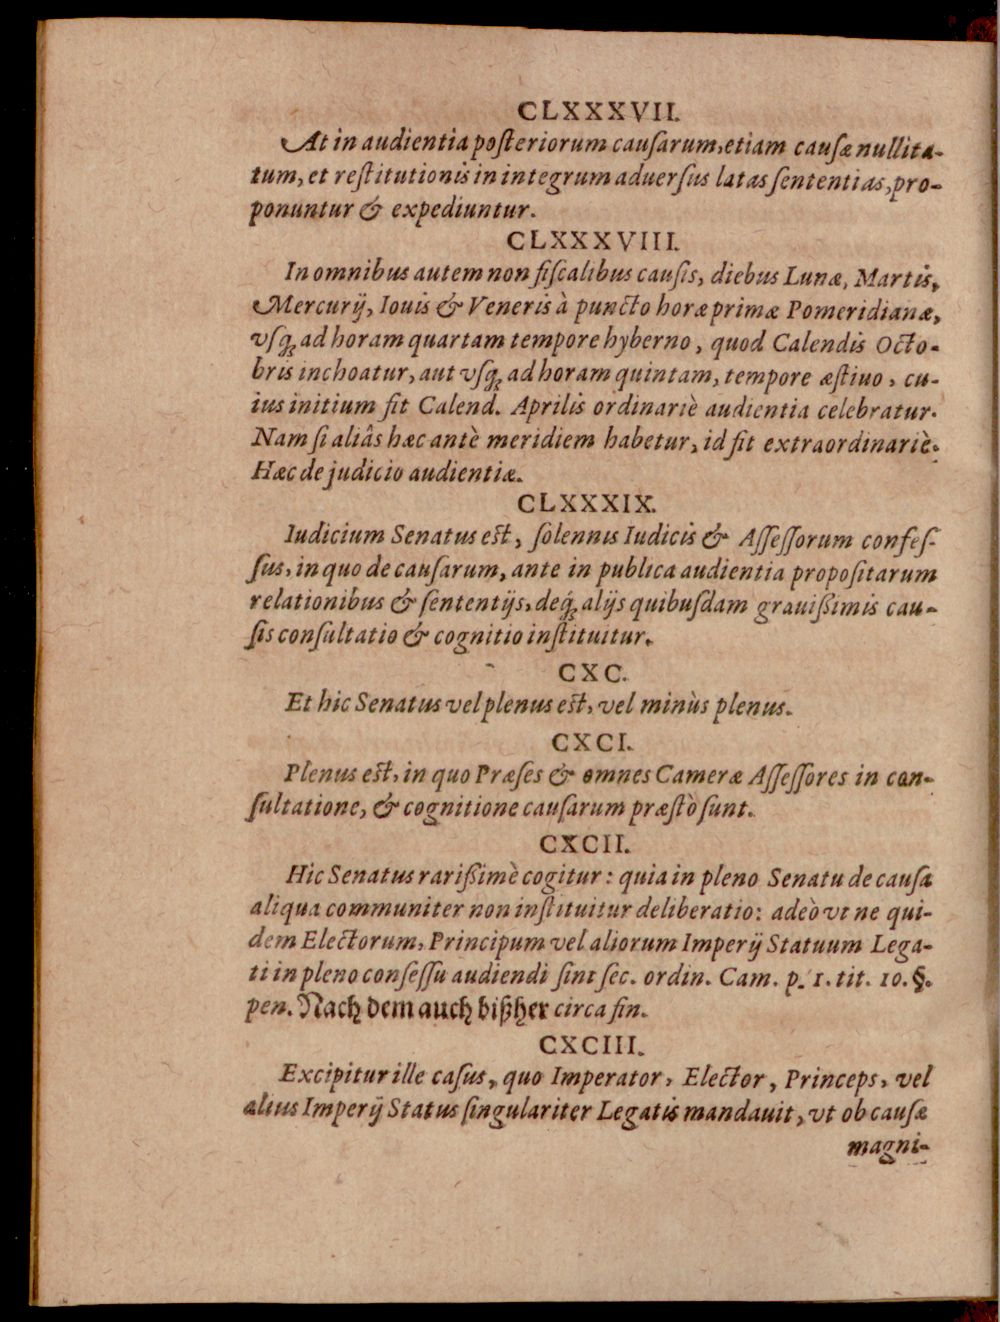 CLXXXVII.
At in audientia poſteriorum cauſarum, etiam cauſæ nullita-
tum, et reſtitutionis in integrum aduerſus latas ſententias, pro-
ponuntur & expediuntur.
CLXXXVIII.
In omnibus autem non fiſcalibus cauſis, diebus Lunæ, Martis,
Mercurij, Iouis & Veneris à puncto horæ primæ Pomeridianæ,
vſq; ad horam quartam tempore hyberno, quod Calendis Octo-
bris inchoatur, aut vſq; ad horam quintam, tempore æſtiuo, cu-
ius initium fit Calend. Aprilis ordinariè audientia celebratur.
Nam ſi aliâs hæc antè meridiem habetur, id fit extraordinariè.
Hæc de judicio audientiæ.
CLXXXIX.
Iudicium Senatus eſt, ſolennis Iudicis & Aſſeſſorum confeſ-
ſus, in quo de cauſarum, ante in publica audientia propoſitarum
relationibus & ſententijs, deq́; alijs quibuſdam grauißimis cau-
ſis conſultatio & cognitio inſtituitur.
CXC.
Et hic Senatus vel plenus eſt, vel minùs plenus.
CXCI.
Plenus eſt, in quo Præſes & omnes Cameræ Aſſeſſores in con-
ſultatione, & cognitione cauſarum præſtò ſunt.
CXCII.
Hic Senatus rarißimè cogitur: quia in pleno Senatu de cauſa
aliqua communiter non inſtituitur deliberatio: adeò vt ne qui-
dem Electorum, Principum vel aliorum Imperij Statuum Lega-
ti in pleno conſeſſu audiendi ſint ſec. ordin. Cam. p. 1. tit. 10. §.
pen. Nach dem auch bißher circa fin.
CXCIII.
Excipitur ille caſus, quo Imperator, Elector, Princeps, vel
alius Imperij Status ſingulariter Legatis mandauit, vt ob cauſæ
magni-